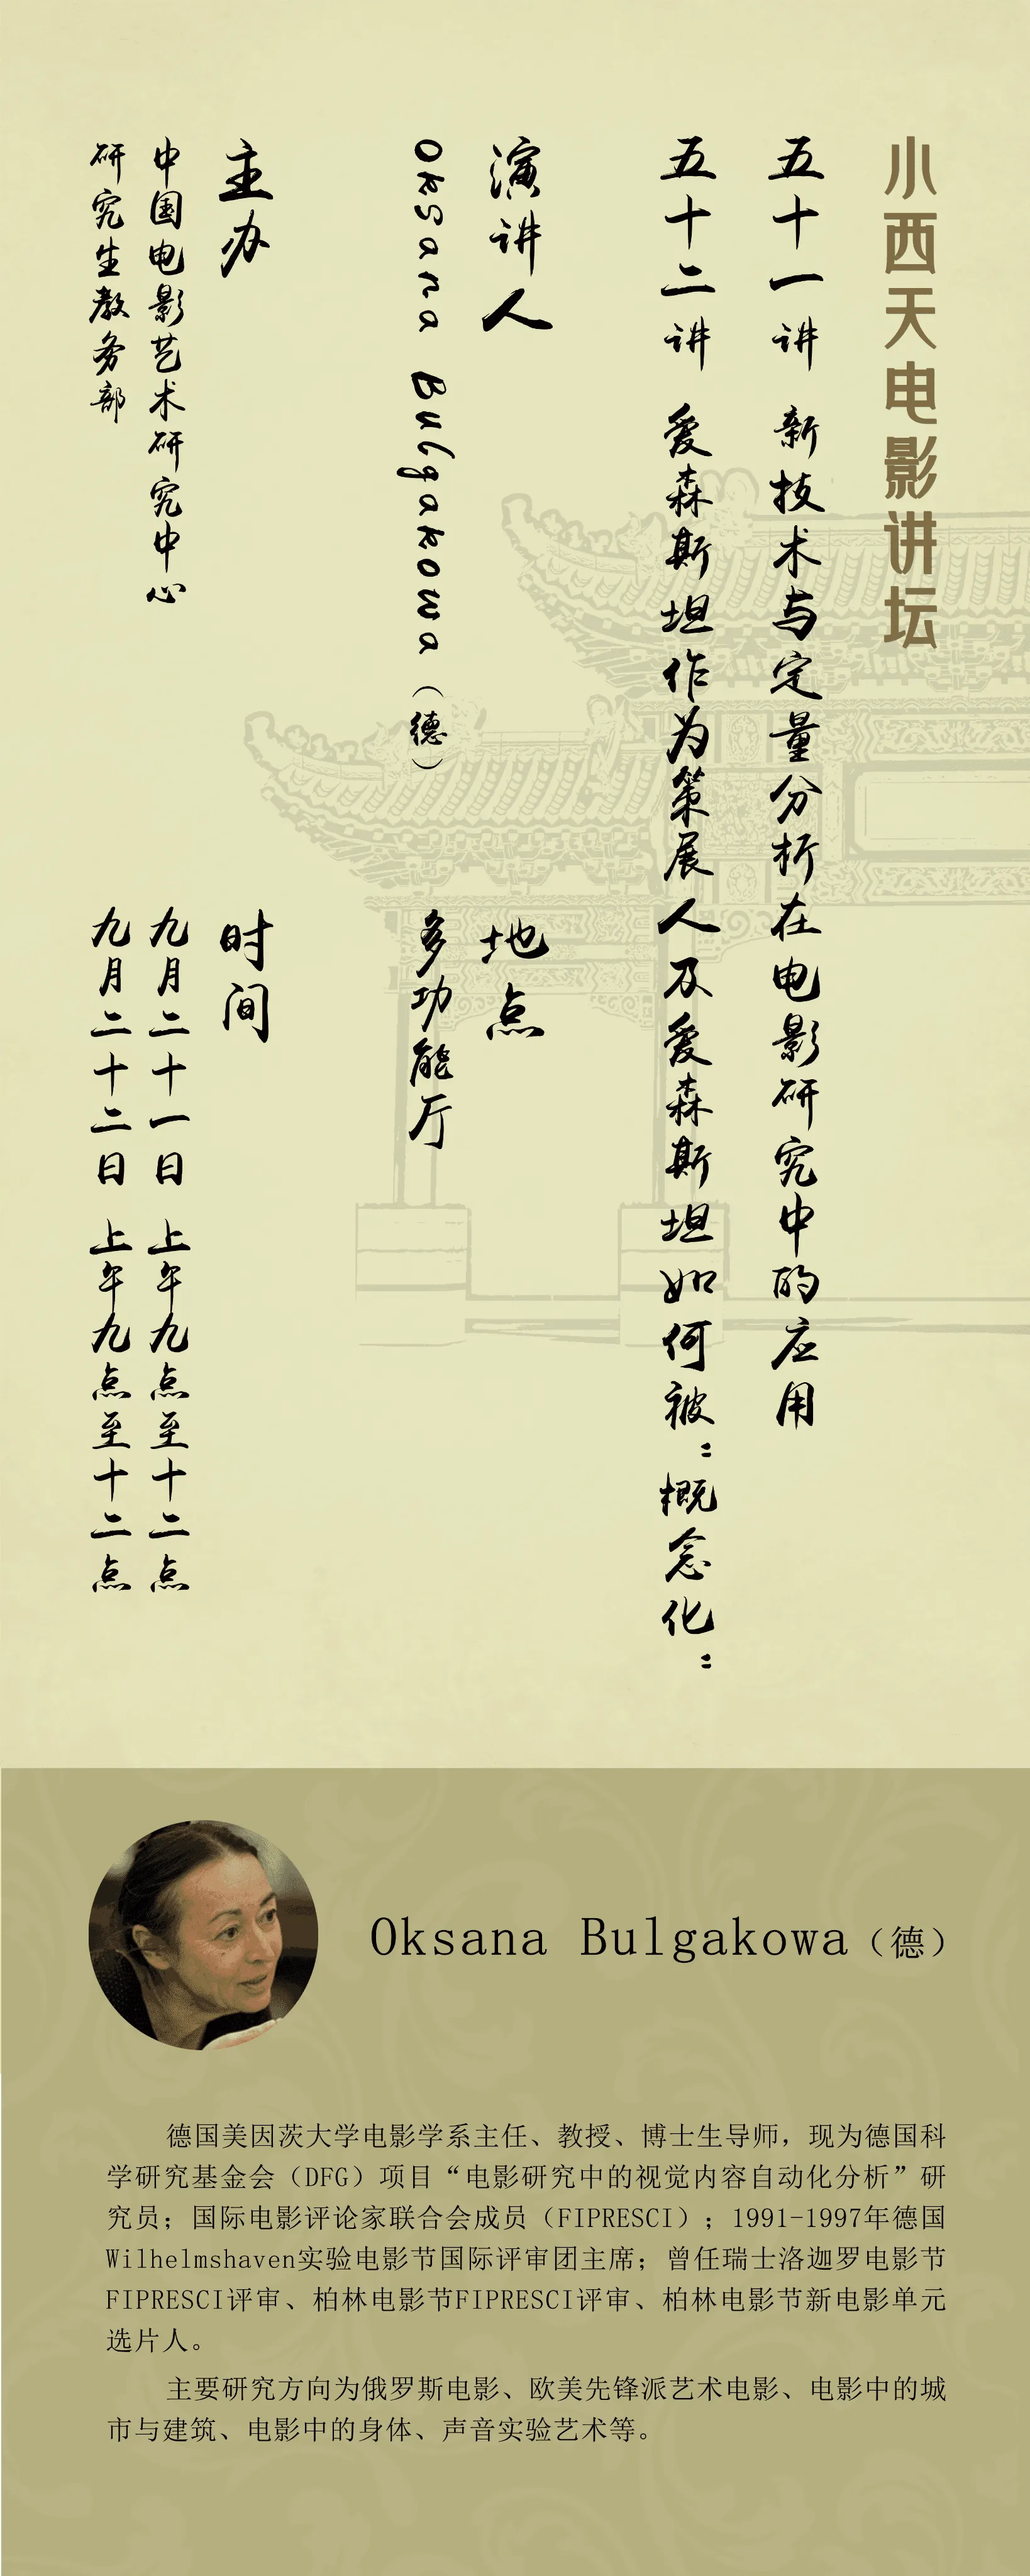 小西天电影讲坛
五十一讲 新技术与定量分析在电影研究中的应用
五十二讲 爱森斯坦作为策展人及爱森斯坦如何被"概念化"
演讲人
Oksana Bulgakowa（德）
地点
多功能厅
主办
中国电影艺术研究中心
研究生教务部
时间
九月二十一日 上午九点至十二点
九月二十二日 上午九点至十二点
Oksana Bulgakowa（德）
德国美因茨大学电影学系主任、教授、博士生导师，现为德国科
学研究基金会（DFG）项目“电影研究中的视觉内容自动化分析”研
究员；国际电影评论家联合会成员（FIPRESCI）；1991-1997年德国
Wilhelmshaven实验电影节国际评审团主席；曾任瑞士洛迦罗电影节
FIPRESCI评审、柏林电影节FIPRESCI评审、柏林电影节新电影单元
选片人。
主要研究方向为俄罗斯电影、欧美先锋派艺术电影、电影中的城
市与建筑、电影中的身体、声音实验艺术等。